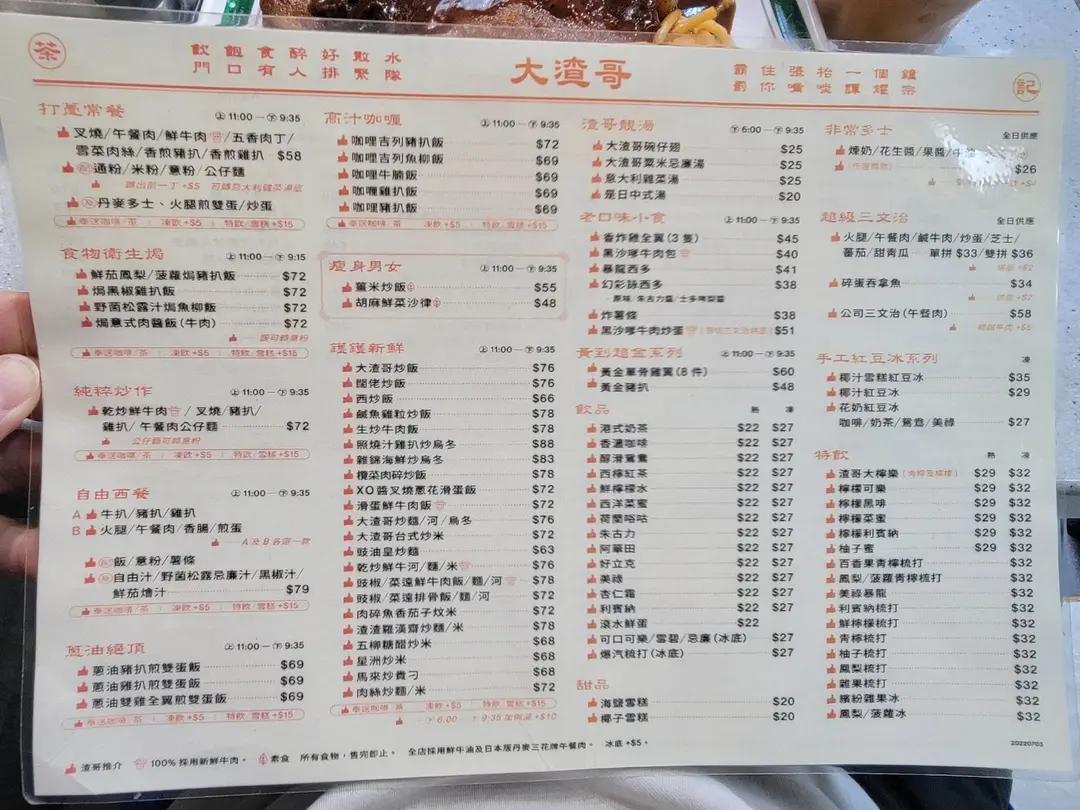 茶
飲飽食醉好散水
門口有人排緊隊
大渣哥
霸住張枱一個鐘
因你嘴啖譚耀宗
記
打躉常餐
㊤ 11:00 — ㊦ 9:35
叉燒/午餐肉/鮮牛肉/五香肉丁/
雪菜肉絲/香煎豬扒/香煎雞扒 $58
配 通粉/米粉/意粉/公仔麵
轉出前一丁 +$5 可轉意大利雜菜湯底
及 丹麥多士、火腿煎雙蛋/炒蛋
奉送咖啡/茶 | 凍飲 +$5 | 特飲/雪糕 +$15
食物衛生焗
㊤ 11:00 — ㊦ 9:15
鮮茄鳳梨/菠蘿焗豬扒飯 $72
焗黑椒雞扒飯 $72
野菌松露汁焗魚柳飯 $72
焗意式肉醬飯(牛肉) $72
飯可轉意粉
奉送咖啡/茶 | 凍飲 +$5 | 特飲/雪糕 +$15
純粹炒作
㊤ 11:00 — ㊦ 9:35
乾炒鮮牛肉/叉燒/豬扒/
雞扒/午餐肉公仔麵 $72
公仔麵可轉意粉
奉送咖啡/茶 | 凍飲 +$5 | 特飲/雪糕 +$15
自由西餐
㊤ 11:00 — ㊦ 9:35
A 牛扒/豬扒/雞扒
B 火腿/午餐肉/香腸/煎蛋
A 及 B 各選一款
配 飯/意粉/薯條
及 自由汁/野菌松露忌廉汁/黑椒汁/
鮮茄燴汁 $79
奉送咖啡/茶 | 凍飲 +$5 | 特飲/雪糕 +$15
蔥油絕頂
㊤ 11:00 — ㊦ 9:35
蔥油豬扒煎雙蛋飯 $69
蔥油雞扒煎雙蛋飯 $69
蔥油雙雞全翼煎雙蛋飯 $69
奉送咖啡/茶 | 凍飲 +$5 | 特飲/雪糕 +$15
高汁咖喱
㊤ 11:00 — ㊦ 9:35
咖哩吉列豬扒飯 $72
咖哩吉列魚柳飯 $69
咖哩牛腩飯 $69
咖喱雞扒飯 $69
咖哩豬扒飯 $69
奉送咖啡/茶 | 凍飲 +$5 | 特飲/雪糕 +$15
瘦身男女
㊤ 11:00 — ㊦ 9:35
薑米炒飯 $55
胡麻鮮菜沙律 $48
鑊鑊新鮮
㊤ 11:00 — ㊦ 9:35
大渣哥炒飯 $76
闊佬炒飯 $76
西炒飯 $66
鹹魚雞粒炒飯 $78
生炒牛肉飯 $78
照燒汁雞扒炒烏冬 $88
雜錦海鮮炒烏冬 $83
欖菜肉碎炒飯 $78
XO醬叉燒蔥花滑蛋飯 $72
滑蛋鮮牛肉飯 $72
大渣哥炒麵/河/烏冬 $76
大渣哥台式炒米 $72
豉油皇炒麵 $63
乾炒鮮牛河/麵/米 $76
豉椒/菜遠鮮牛肉飯/麵/河 $78
豉椒/菜遠排骨飯/麵/河 $72
肉碎魚香茄子炆米 $72
渣渣羅漢齋炒麵/米 $78
五柳糖醋炒米 $68
星洲炒米 $68
馬來炒貴刁 $68
肉絲炒麵/米 $72
奉送咖啡/茶 凍飲 +$5 | 特飲/雪糕 +$15
㊦ 6:00 — ㊦ 9:35 加例湯 +$10
渣哥靚湯
㊦ 6:00 — ㊦ 9:35
大渣哥碗仔翅 $25
大渣哥粟米忌廉湯 $25
意大利雜菜湯 $25
是日中式湯 $20
老口味小食
㊤ 11:00 — ㊦ 9:35
香炸雞全翼(3 隻) $45
黑沙嗲牛肉包 $40
暴龍西多 $41
幻彩詠西多 $38
原味/朱古力醬/士多啤梨醬
炸薯條 $38
黑沙嗲牛肉炒蛋 $51
黃到趙金系列
㊤ 11:00 — ㊦ 9:35
黃金單骨雞翼(8 件) $60
黃金豬扒 $48
飲品 熱 凍
港式奶茶 $22 $27
香濃咖啡 $22 $27
醇滑鴛鴦 $22 $27
西檸紅茶 $22 $27
鮮檸檬水 $22 $27
西洋菜蜜 $22 $27
荷蘭唂咕 $22 $27
朱古力 $22 $27
阿華田 $22 $27
好立克 $22 $27
美祿 $22 $27
杏仁霜 $22 $27
利賓納 $22 $27
滾水鮮蛋 $22
可口可樂/雪碧/忌廉(冰底) $27
爆汽梳打(冰底) $27
甜品
海鹽雪糕 $20
椰子雪糕 $20
非常多士
全日供應
煉奶/花生醬/果醬/牛油
$26
超級三文治
全日供應
火腿/午餐肉/鹹牛肉/炒蛋/芝士/
蕃茄/甜青瓜 單拼 $33/雙拼 $36
烘底 +$2
碎蛋吞拿魚 $34
烘底 +$2
公司三文治(午餐肉) $58
轉鹹牛肉 +$5
手工紅豆冰系列 凍
椰汁雪糕紅豆冰 $35
椰汁紅豆冰 $29
花奶紅豆冰
咖啡/奶茶/鴛鴦/美祿 $27
特飲 熱 凍
渣哥大檸樂(青檸及檸檬) $29 $32
檸檬可樂 $29 $32
檸檬黑啡 $29 $32
檸檬菜蜜 $29 $32
檸檬利賓納 $29 $32
柚子蜜 $29 $32
百香果青檸梳打 $32
鳳梨/菠蘿青檸梳打 $32
美祿暴龍 $32
利賓納梳打 $32
鮮檸檬梳打 $32
青檸梳打 $32
柚子梳打 $32
鳳梨梳打 $32
雜果梳打 $32
繽紛雜果冰 $32
鳳梨/菠蘿冰 $32
渣哥推介 100% 採用新鮮牛肉。 素食 所有食物,售完即止。 全店採用鮮牛油及日本版丹麥三花牌午餐肉。 冰底 +$5。
20220703